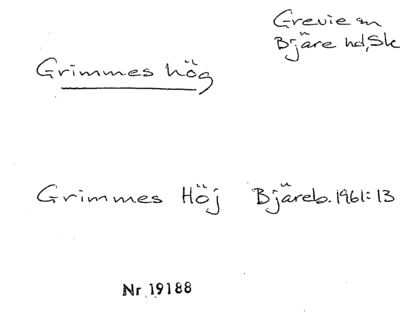 Grevie sn
Bjäre hd, Sk
Grimmes hög
Grimmes Höj Bjäreb. 1961:13
Nr 19188